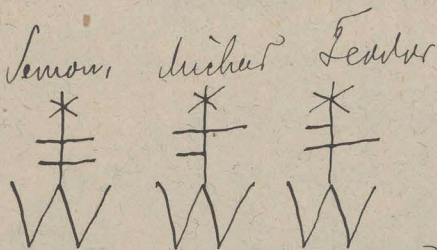 Semon, Michael Feodor